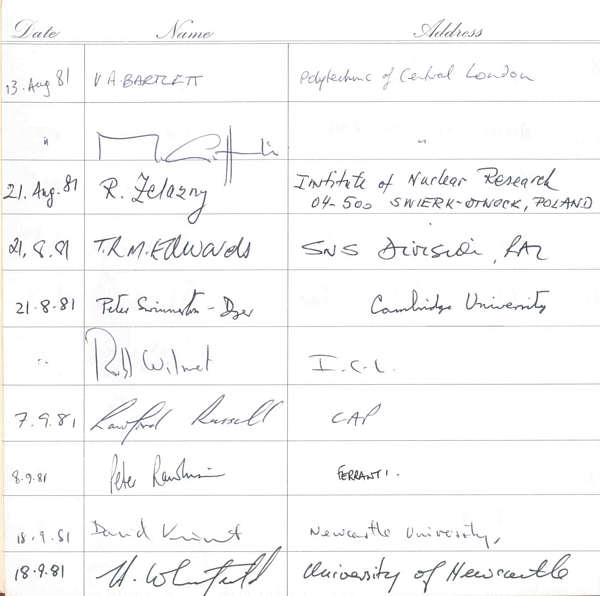 Date Name Address
13. Aug 81 V A. BARTLETT Polytechnic of Central London
" "
21. Aug. 81 R. Zelazny Institute of Nuclear Research
04-500 SWIERK-OTWOCK, POLAND
21. 8. 81 T.R.M. EDWARDS SNS Division, RAL
21-8-81 Peter Swinnerton-Dyer Cambridge University
" Wilmot I.C.L.
7.9.81 Lawford Russell CAP
8.9.81 Peter FERRANTI.
18.9.81 David Newcastle University,
18.9.81 H. Whitfield University of Newcastle